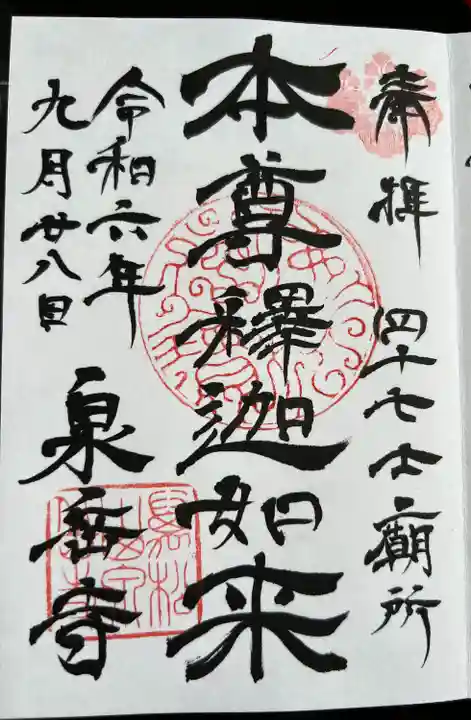 奉拝 四十七士廟所
本尊釋迦如来
令和六年
九月廿八日
泉岳寺